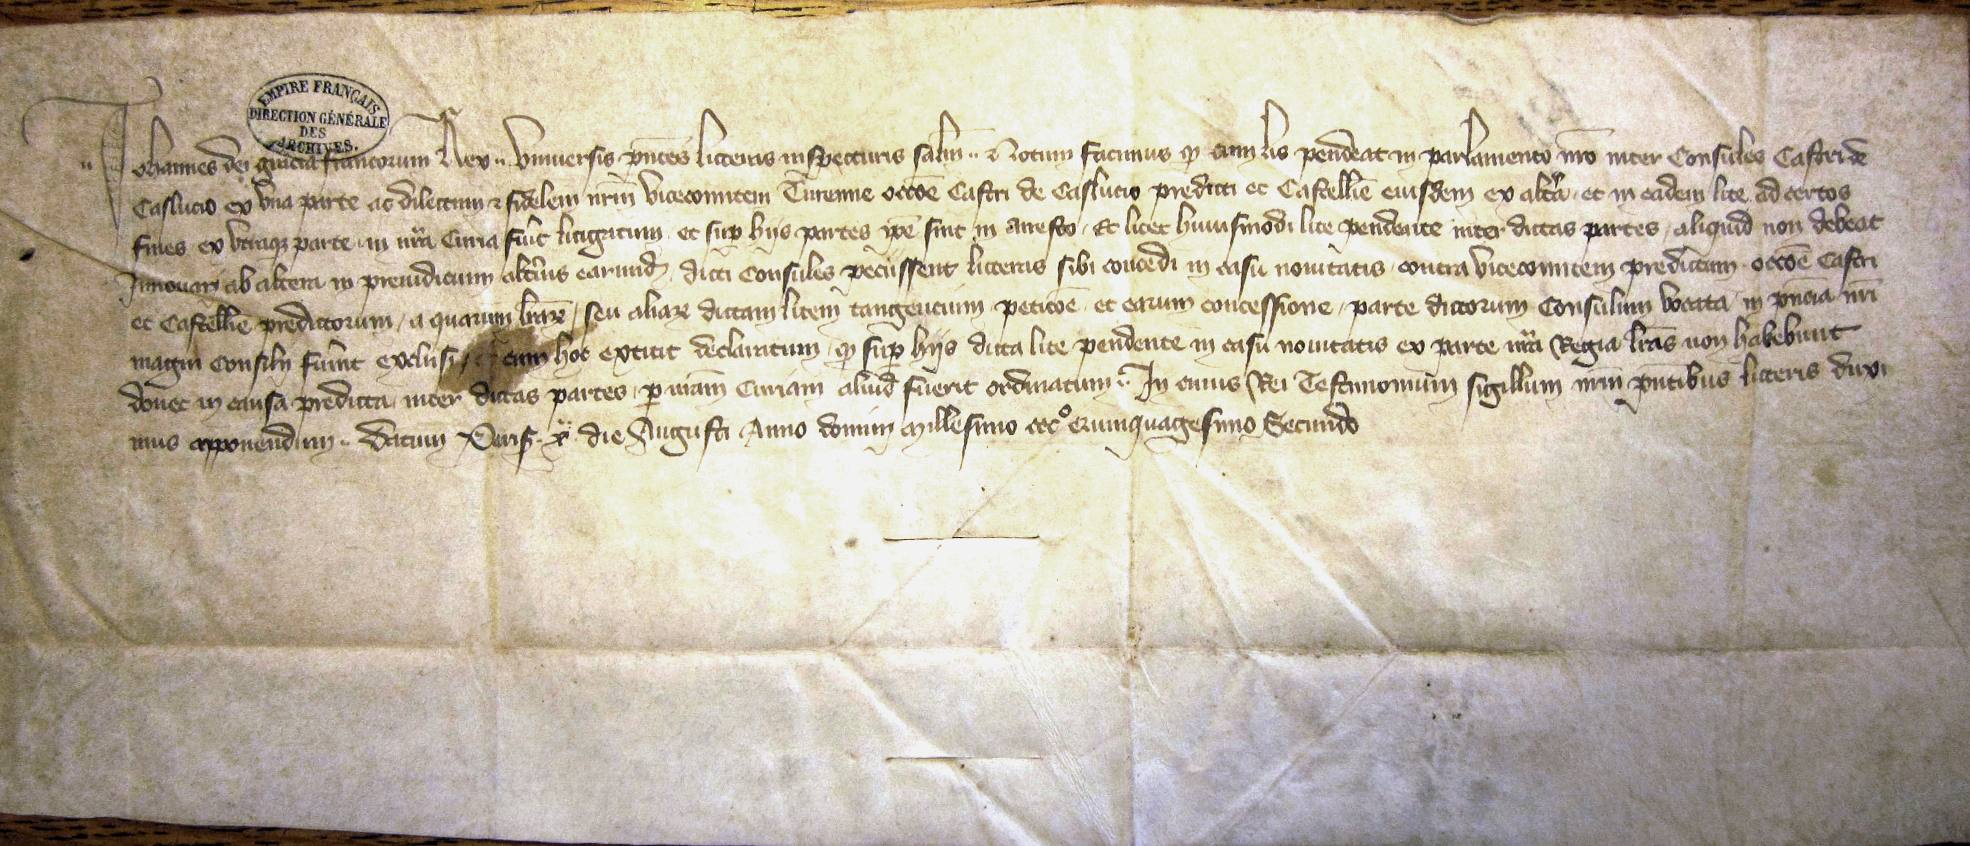 EMPIRE FRANÇAIS
DIRECTION GÉNÉRALE
DES
ARCHIVES.
Johannes dei gracia francorum Rex Universis pñtes litteras inspecturis salt̃m Notum facimus q̃ cum lis pendeat in parlamento nr̃o inter Consules Castri de
Caslucio ex una parte ac dilectum & fidelem nr̃m vicecomitem Turenne occõe Castri de Caslucio predicti et Castellĩe eiusdem ex altã et in eadem lite ad certos
fines ex utraqz parte in nr̃a Curia fuĩt litigatum et sup hijs partes ip̃e sint in aresto Et licet huiusmodi lite pendente inter dictas partes aliquid non debeat
Innovari ab altera in preiudicium altĩus earund̃ dicti Consules peciissent litteras sibi concedi in casu novitatis contra vicecomitem predictum occõe Castri
et Castellĩe predictorum a quarum lr̃arꝝ seu aliarꝝ dictam litem tangencium peticõe et earum concessione parte dictorum Consulum vocata in pñcia nr̃i
magni Consilii fuĩnt exclusi cum hoc extitit declaratum q̃ sup hijs dicta lite pendente in casu novitatis ex parte nr̃a Regia lr̃as non habebunt
donec in causa predicta inter dictas partes p nr̃am Curiam aliud fuerit ordinatum In cuius Rei Testimonium sigillum nr̃m pñtibus litteris duxi
mus apponendum Datum Paris̃ xª die Augusti Anno domini Millesimo cccº quinquagesimo Secundo